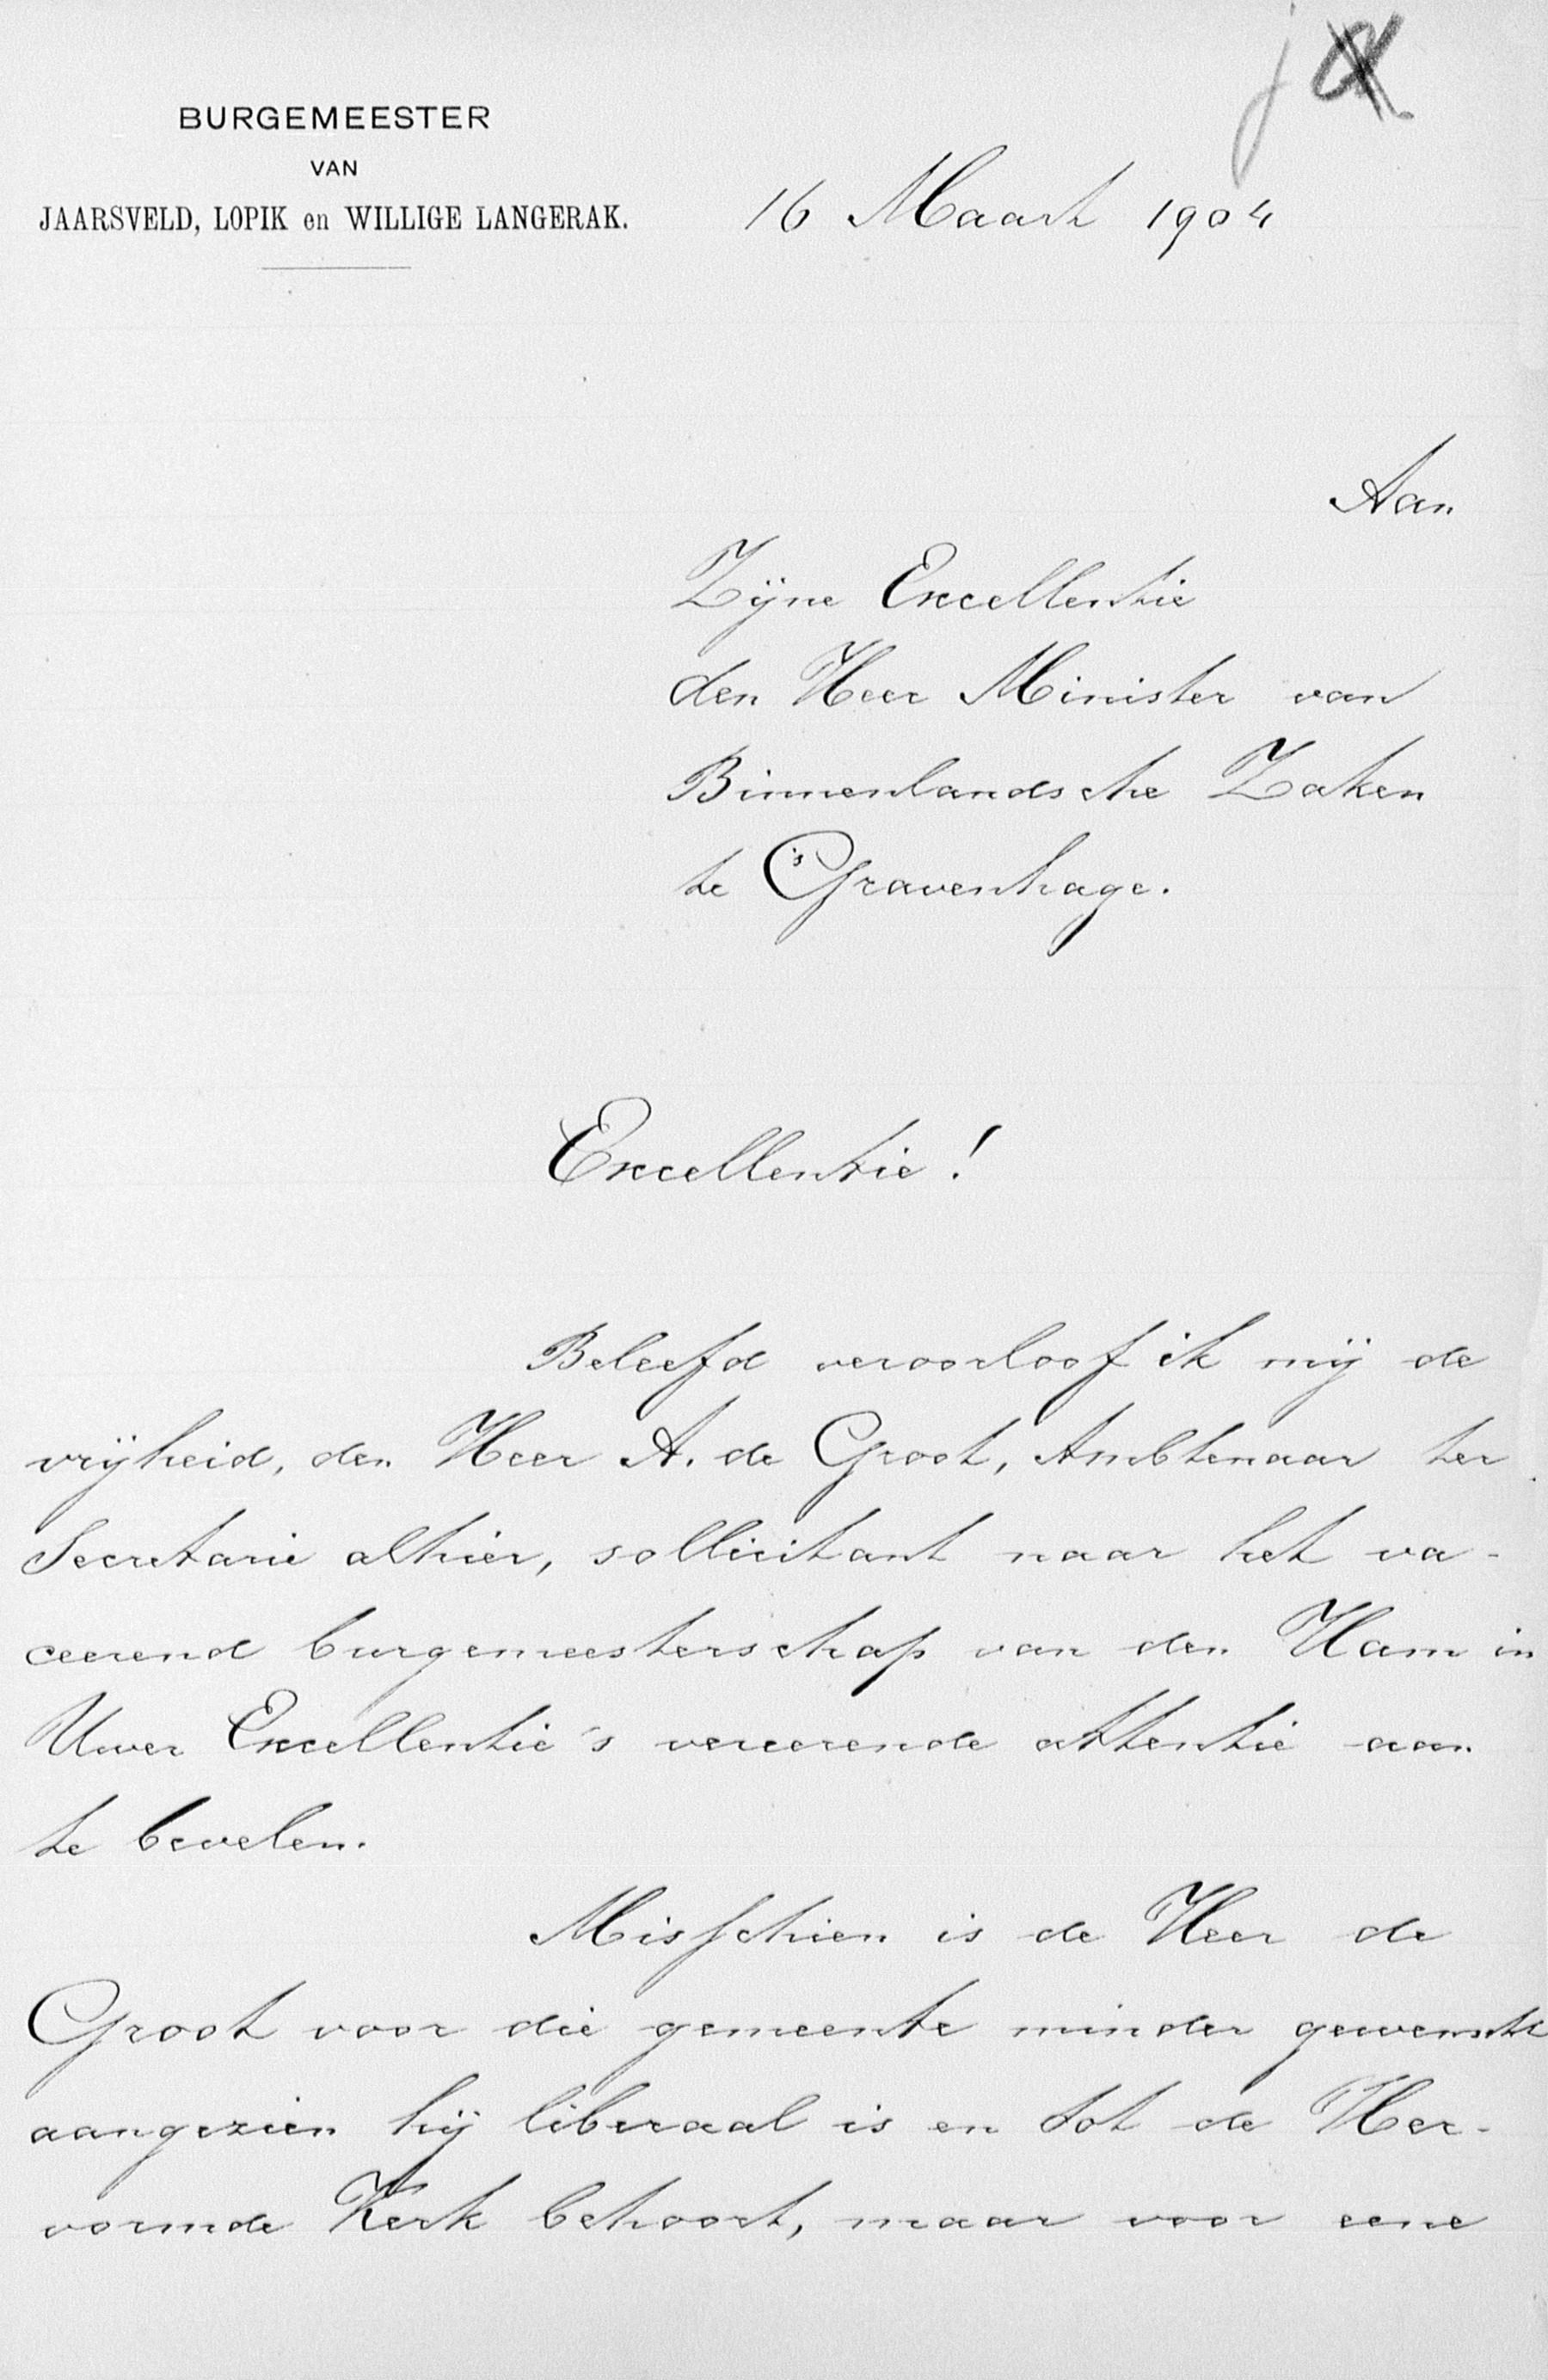 BURGEMEESTER
VAN
JAARSVELD, LOPIK en WILLIGE LANGERAK.
16 Maart 1904
Aan
Zijne Excellentie
den Heer Minister van
Binnenlandsche Zaken
te 's Gravenhage.
Excellentie!
Beleefd veroorloof ik mij de
vrijheid, den Heer A. de Groot, Ambtenaar ter
Secretarie alhier, sollicitant naar het va-
ceerend burgemeesterschap van den Ham in
Uwer Excellentie's vereerende attentie aan
te bevelen.
Misschien is de Heer de
Groot voor die gemeente minder gewenscht
aangezien hij liberaal is en tot de Her-
vormde Kerk behoort, maar voor eene